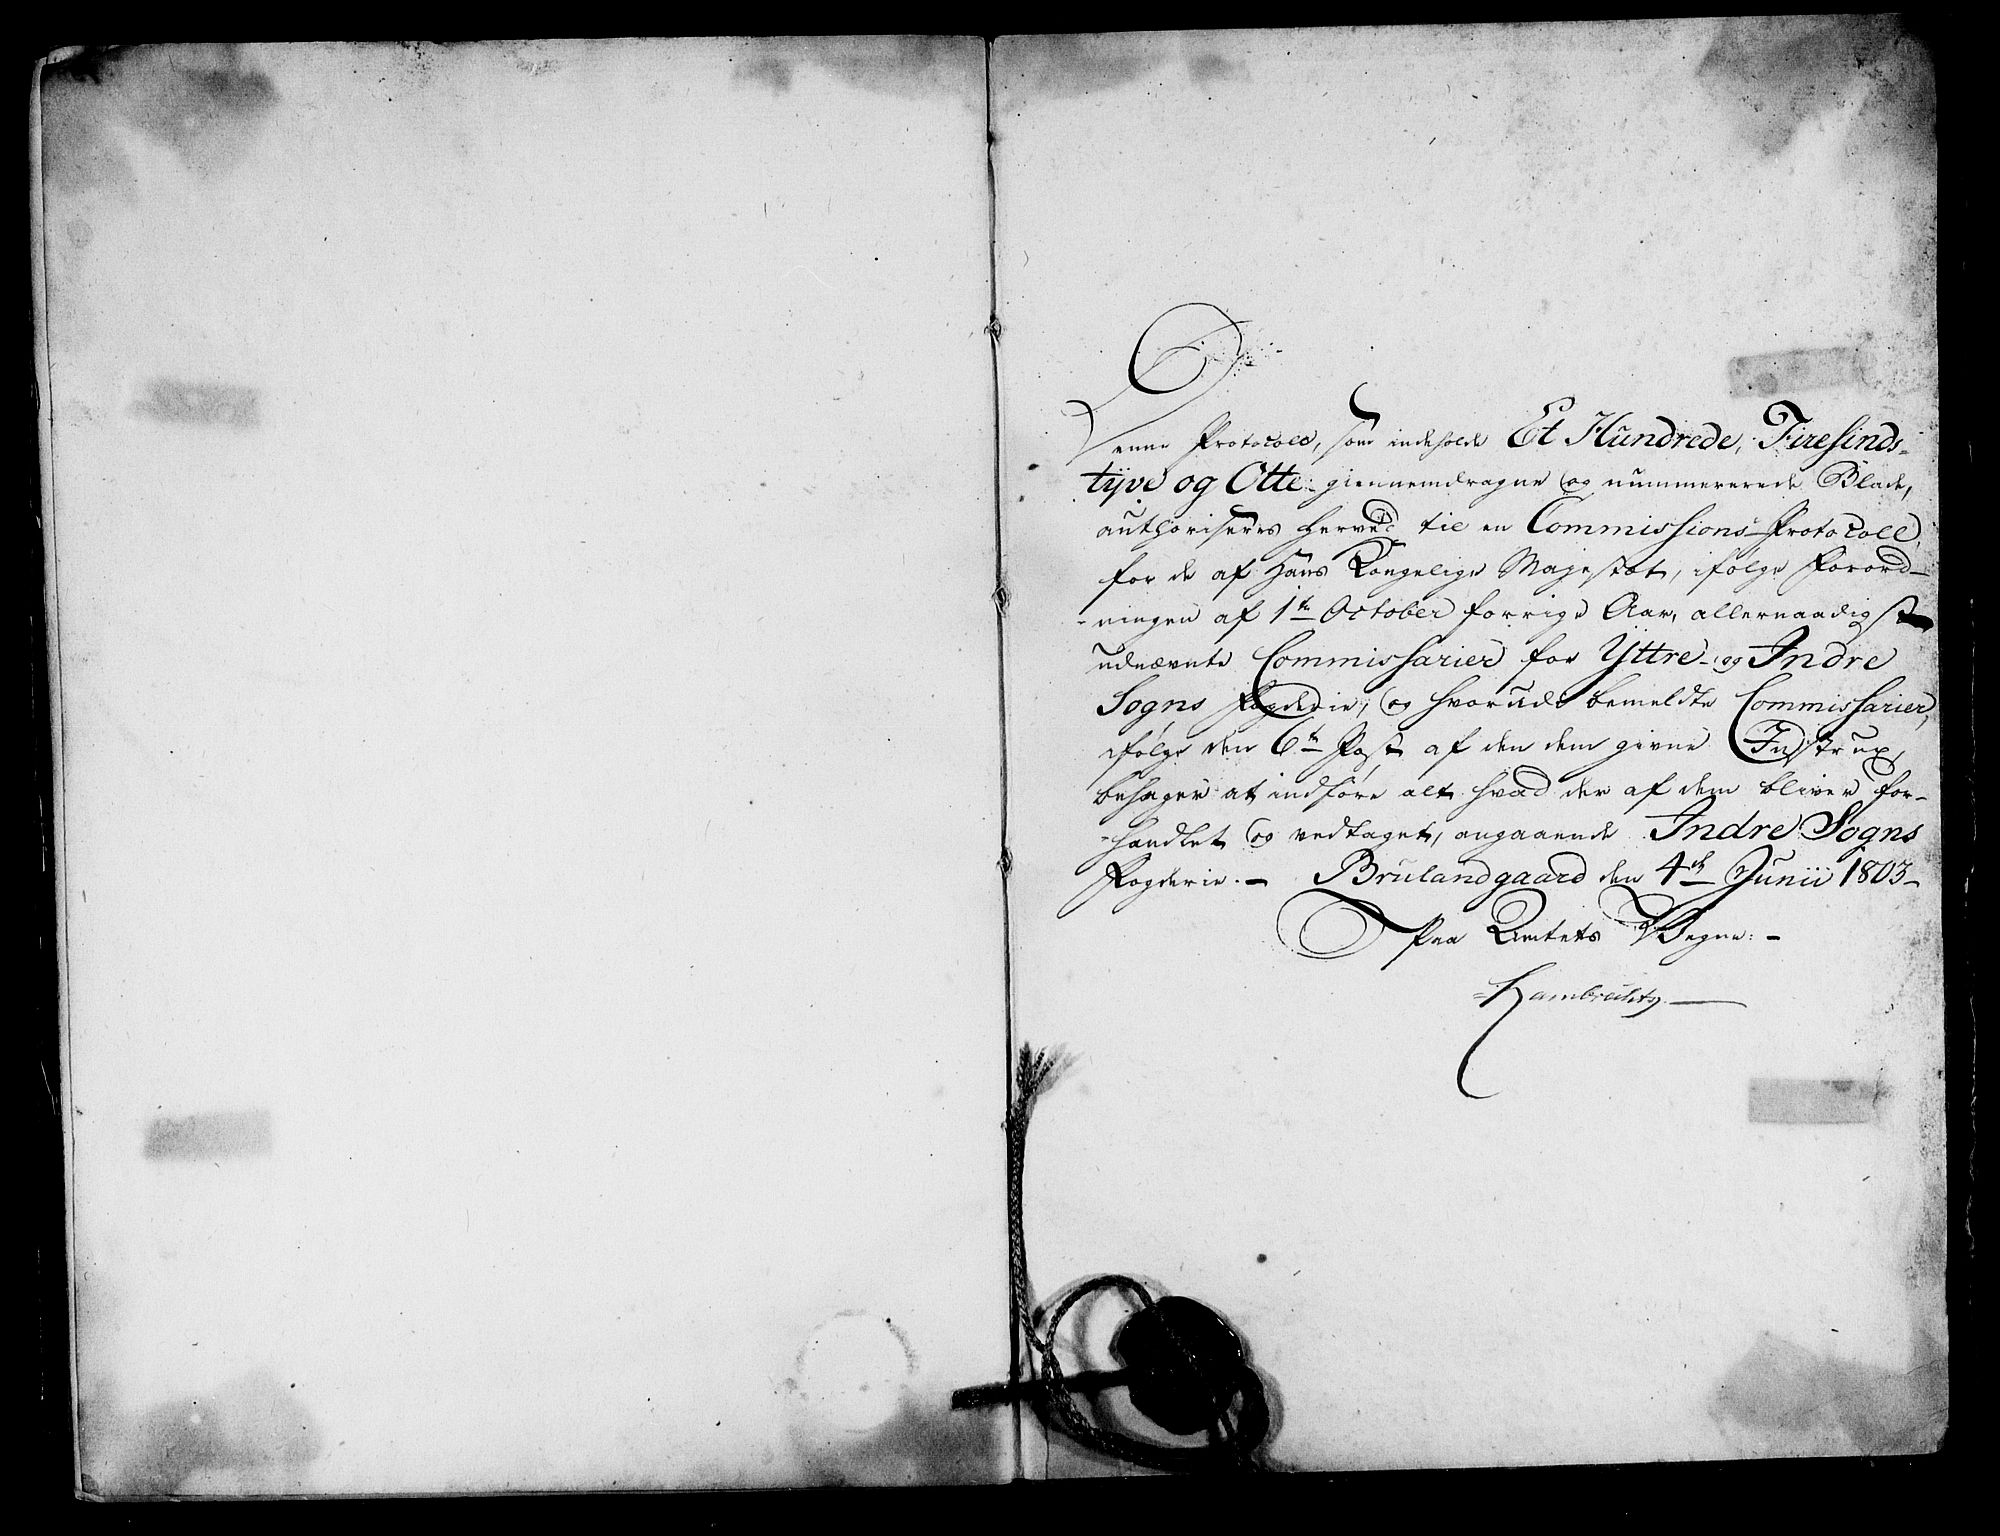 Denne Protocoll, som indeholde Et Hundrede, Firesinds-
tÿve og Otte giennemdragne og nummererede Blade,
authoriseres herved til en Commissions-Protocoll,
for de af Hans Kongelige Majestæt, ifølge Forord-
-ningen af 1te October forrige Aar, allernaadigst
udnævnte Commissarier for Ÿttre- og Indre
Sogns Fogderie, og hvorudi bemeldte Commissarier,
ifølge den 6te Post af den dem givne Instrux,
behager at indføre alt hvad der af dem bliver for-
-handlet og vedtaget, angaaende Indre Sogns
Fogderie. - Brulandgaard den 4de Junii 1803-
Paa Amtets Vegne: -